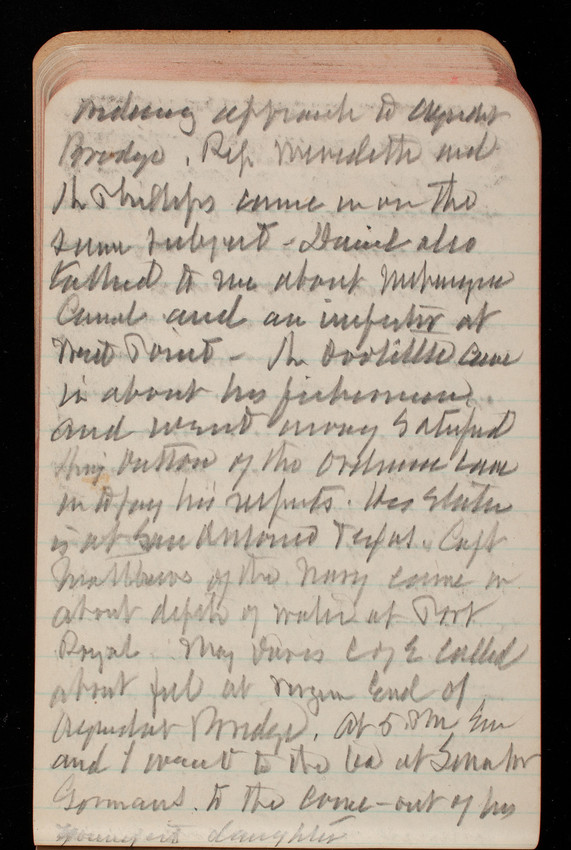 approach to Aqueduct
Bridge. Rep. Meredith and
Mr Phillips came in on the
same subject - Daniel also
talked to me about
Canal and an inspector at
West Point - Mr Doolittle came
in about his fisherman
and went away satisfied
Maj Dutton of the Ordnance came
in to pay his respects. His station
is at San Antonio Texas. Capt
Matthews of the Navy came in
about depth of water at Port
Royal. Maj Davis C of E called
about fill at Virginia End of
Aqueduct Bridge. At 5 PM Em
and I went to the tea at Senator
Gormans. to the come-out of his
youngest daughter